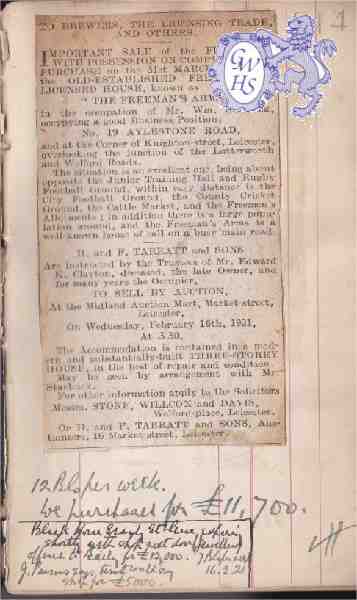 TO BREWERS, THE LICENSING TRADE,
AND OTHERS.
IMPORTANT SALE of the
WITH POSSESSION ON
PURCHASE on the 31st MARCH
the OLD-ESTABLISHED
LICENSED HOUSE, known as
"THE FREEMAN'S
in the occupation of Mr. Wm.
occupying a good Business Position,
No. 19 AYLESTONE ROAD,
and at the Corner of Knighton-street, Leicester,
overlooking the junction of the Lutterworth
and Welford Roads.
The situation is an excellent one, being about
opposite the Junior Training Hall and Rugby
Football Ground, within easy distance is the
City Football Ground, the County Cricket
Ground, the Cattle Market, and the Freemen's
Allotments; in addition there is a large popu-
lation around, and the Freeman's Arms is a
well-known house of call on a busy main road.
H. and F. TARRATT and SONS
Are instructed by the Trustees of Mr. Edward
K. Clayton, deceased, the late Owner, and
for many years the Occupier,
TO SELL BY AUCTION,
At the Midland Auction Mart, Market-street,
Leicester,
On Wednesday, February 16th, 1921,
At 3.30.
The Accommodation is contained in a mod-
ern and substantially-built THREE-STOREY
HOUSE, in the best of repair and condition.
May be seen by arrangement with Mr.
For other information apply to the Solicitors
Messrs. STONE, WILLCOX and DAVIS,
Welford-place, Leicester.
Or H. and F. TARRATT and SONS, Auc-
tioneers, 16 Market-street, Leicester.
12 Bls per week.
We purchased for £11,700.
Black Horse
shortly with next door
offered for £12,000.
16.2.21
for £5000.
GWHS